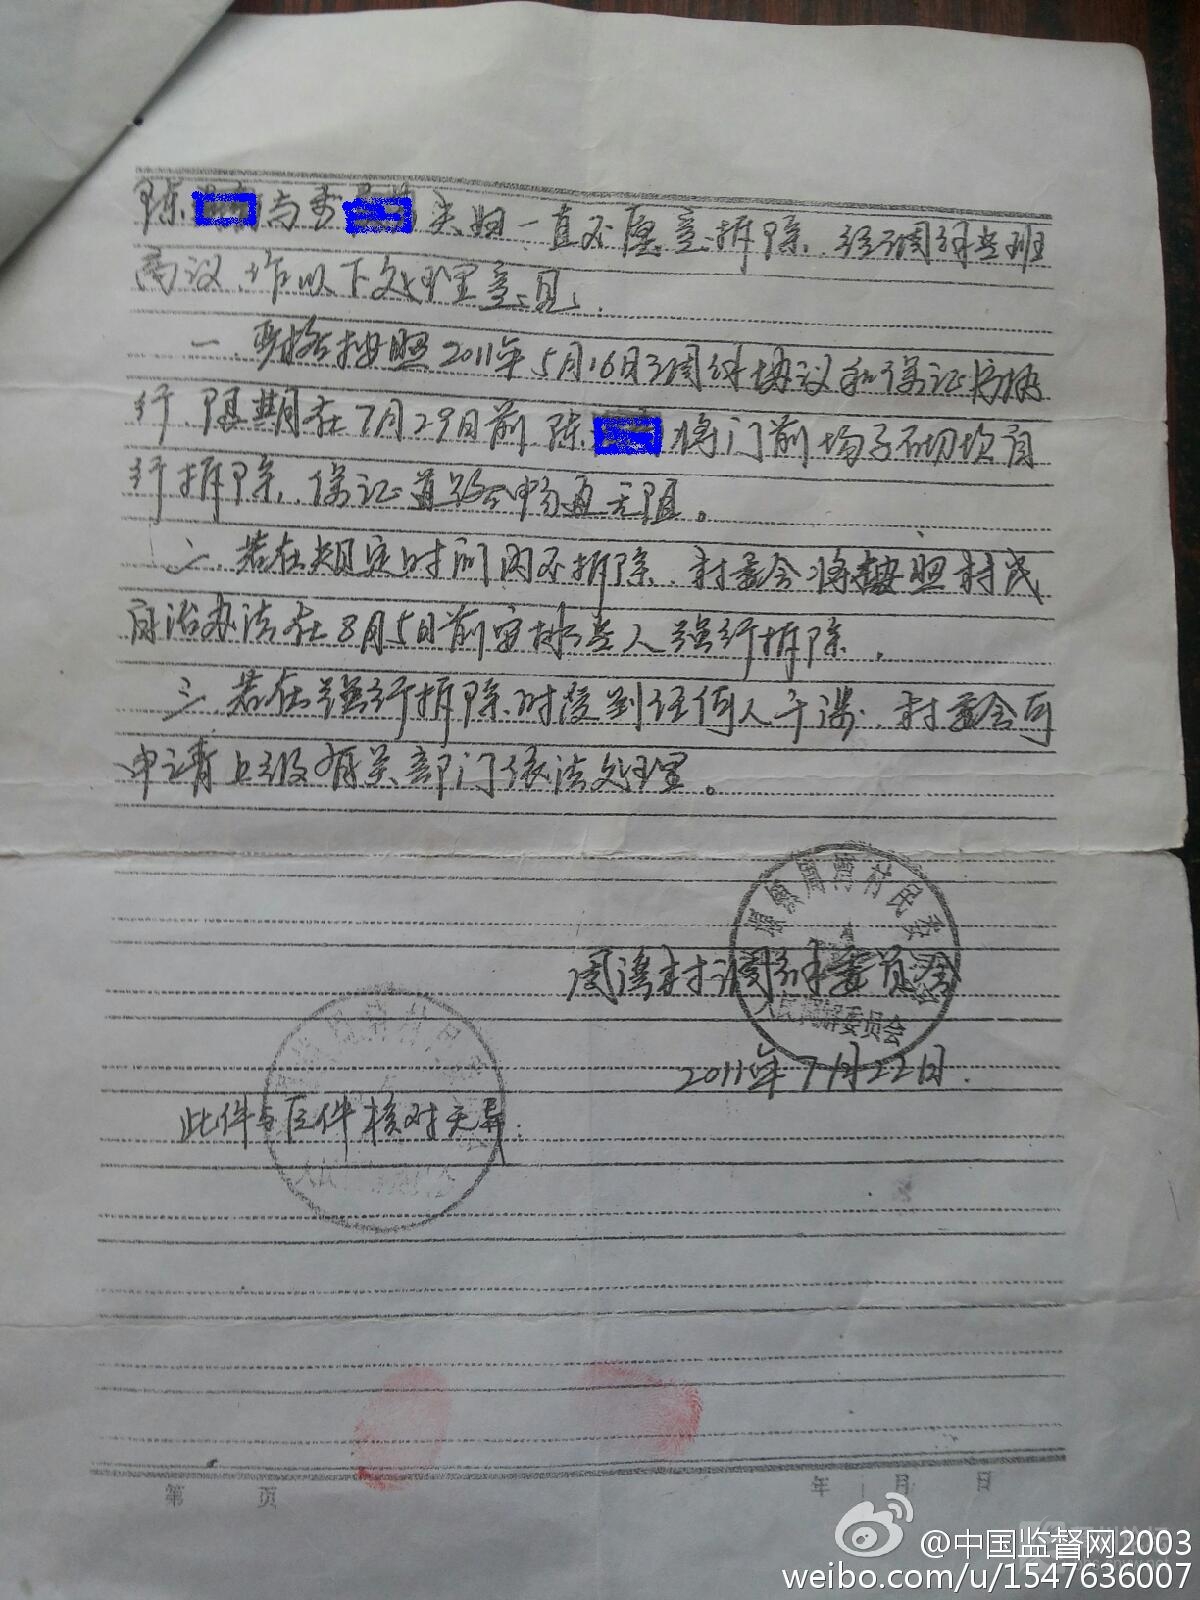 陈 与 夫妇一直不愿意拆除,经调解专班
商议,作以下处理意见:
一、严格按照2011年5月16日调解协议和保证书执
行,限期在7月29日前,陈 将门前场子石砌坎自
行拆除,保证道路畅通无阻。
二、若在规定时间内不拆除,村委会将按照村民
自治办法在8月5日前安排专人强行拆除。
三、若在强行拆除时受到任何人干涉,村委会可
申请上级有关部门依法处理。
周湾村民委
周湾村调解委员会
人民调解委员会
2011年7月22日.
此件与原件核对无异.
第 页
年 月 日
@中国监督网2003
weibo.com/u/1547636007